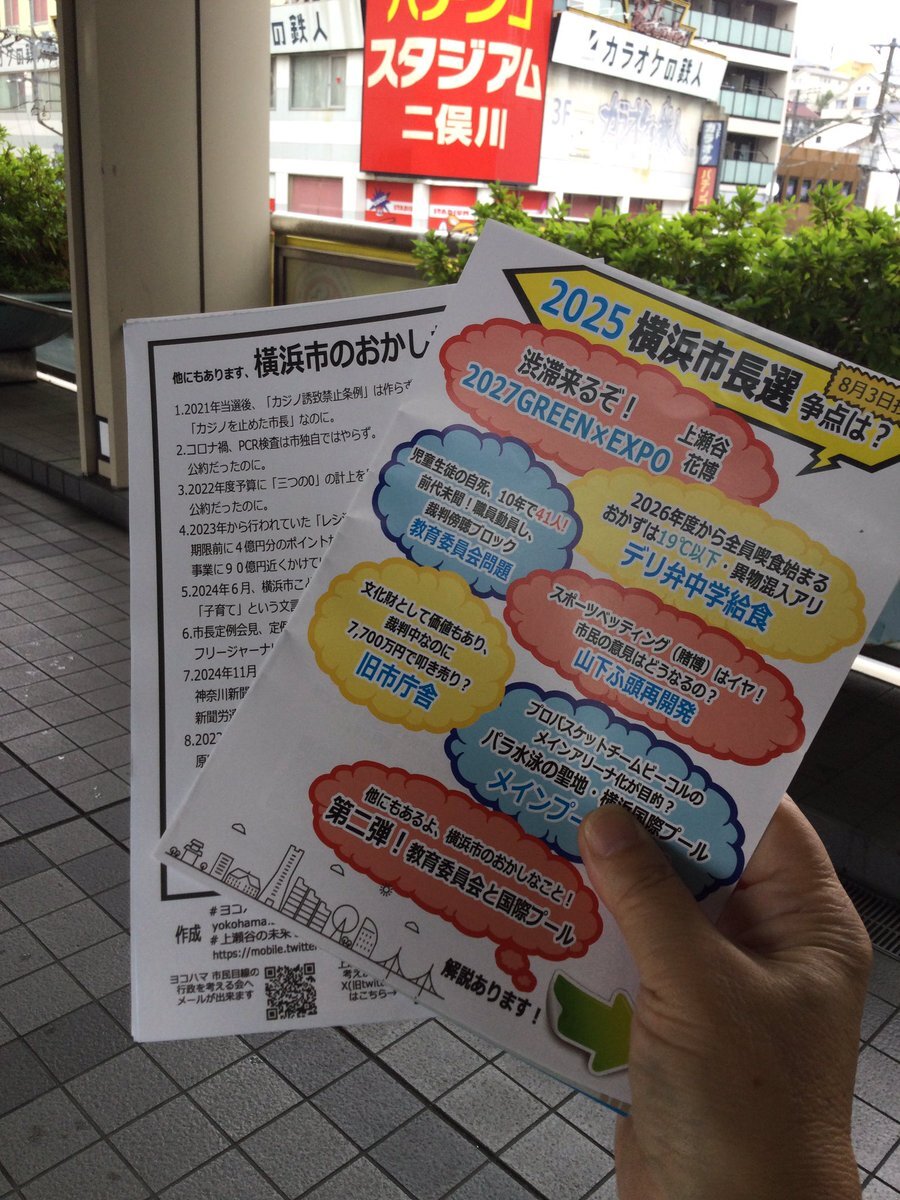 パチンコ
スタジアム
二俣川
の鉄人
カラオケの鉄人
3F
カラオケの鉄人
パチン
他にもあります、横浜市のおかし
1.2021年当選後、「カジノ誘致禁止条例」は作らず
「カジノを止めた市長」なのに。
2.コロナ禍、PCR検査は市独自ではやらず。
公約だったのに。
3.2022年度予算に「三つの0」の計上を
公約だったのに。
4.2023年から行われていた「レシ
期限前に４億円分のポイント
事業に９０億円近くかけて
5.2024年６月、横浜市こ
「子育て」という文言
6.市長定例会見、定
フリージャーナリ
7.2024年11月
神奈川新聞
新聞労
8.202
原
作成
#ヨコ
yokohama.
#上瀬谷の未来
https://mobile.twitter
ヨコハマ 市民目線の
行政を考える会へ
メールが出来ます
上
考え
X(旧twit
はこちら→
2025 横浜市長選 争点は？
8月3日投
渋滞来るぞ！
2027GREEN×EXPO
上瀬谷
花博
児童生徒の自死、10年で41人!
前代未聞！職員動員し、
裁判傍聴ブロック
教育委員会問題
2026年度から全員喫食始まる
おかずは19℃以下・異物混入アリ
デリ弁中学給食
文化財として価値もあり、
裁判中なのに
7,700万円で叩き売り？
旧市庁舎
スポーツベッティング（賭博）はイヤ！
市民の意見はどうなるの？
山下ふ頭再開発
プロバスケットチームビーコルの
メインアリーナ化が目的？
パラ水泳の聖地・横浜国際プール
メインプー
他にもあるよ、横浜市のおかしなこと！
第二弾！教育委員会と国際プール
解説あります！